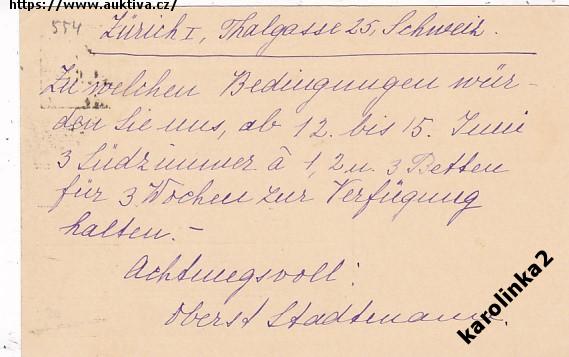 https://www.auktiva.cz/
554
Zürich I, Thalgasse 25, Schweiz.
Zu welchen Bedingungen wür-
den Sie uns, ab 12. bis 15. Juni
3 Südzimmer à 1, 2 u. 3 Betten
für 3 Wochen zur Verfügung
halten. –
Achtungsvoll:
Oberst Stadtmann.
karolinka2